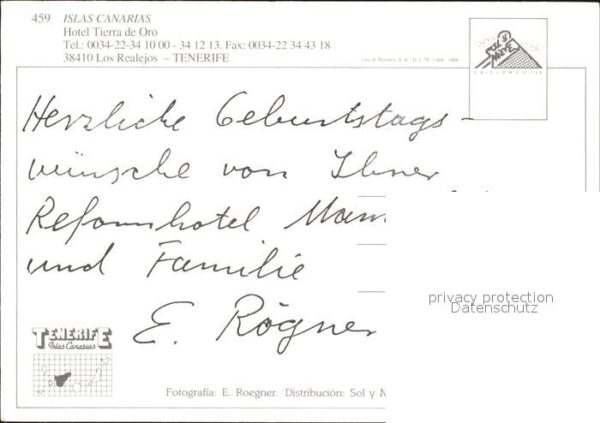 459 ISLAS CANARIAS
Hotel Tierra de Oro
Tel.: 0034-22-34 10 00 - 34 12 13. Fax: 0034-22 34 43 18
38410 Los Realejos – TENERIFE
SOL Y NIEVE
Herzliche Geburtstags-
wünsche von Ihner
Reformhotel
und Familie
E. Rögner
privacy protection
Datenschutz
TENERIFE
Islas Canarias
Fotografía: E. Roegner. Distribución: Sol y N